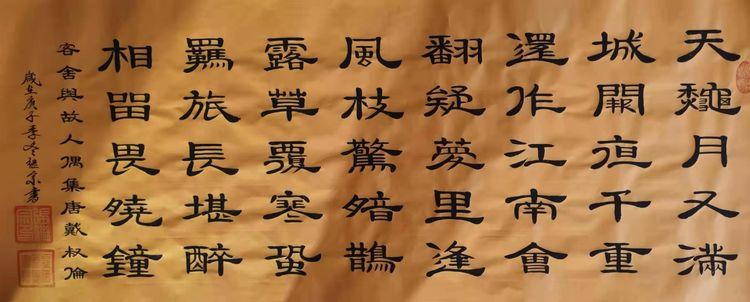 天龝月又滿
城闕夜千重
還作江南會
翻疑夢里逢
風枝驚暗鵲
露草覆寒蛩
羈旅長堪醉
相留畏曉鐘
客舍與故人偶集唐戴叔倫
歲在庚子季冬書